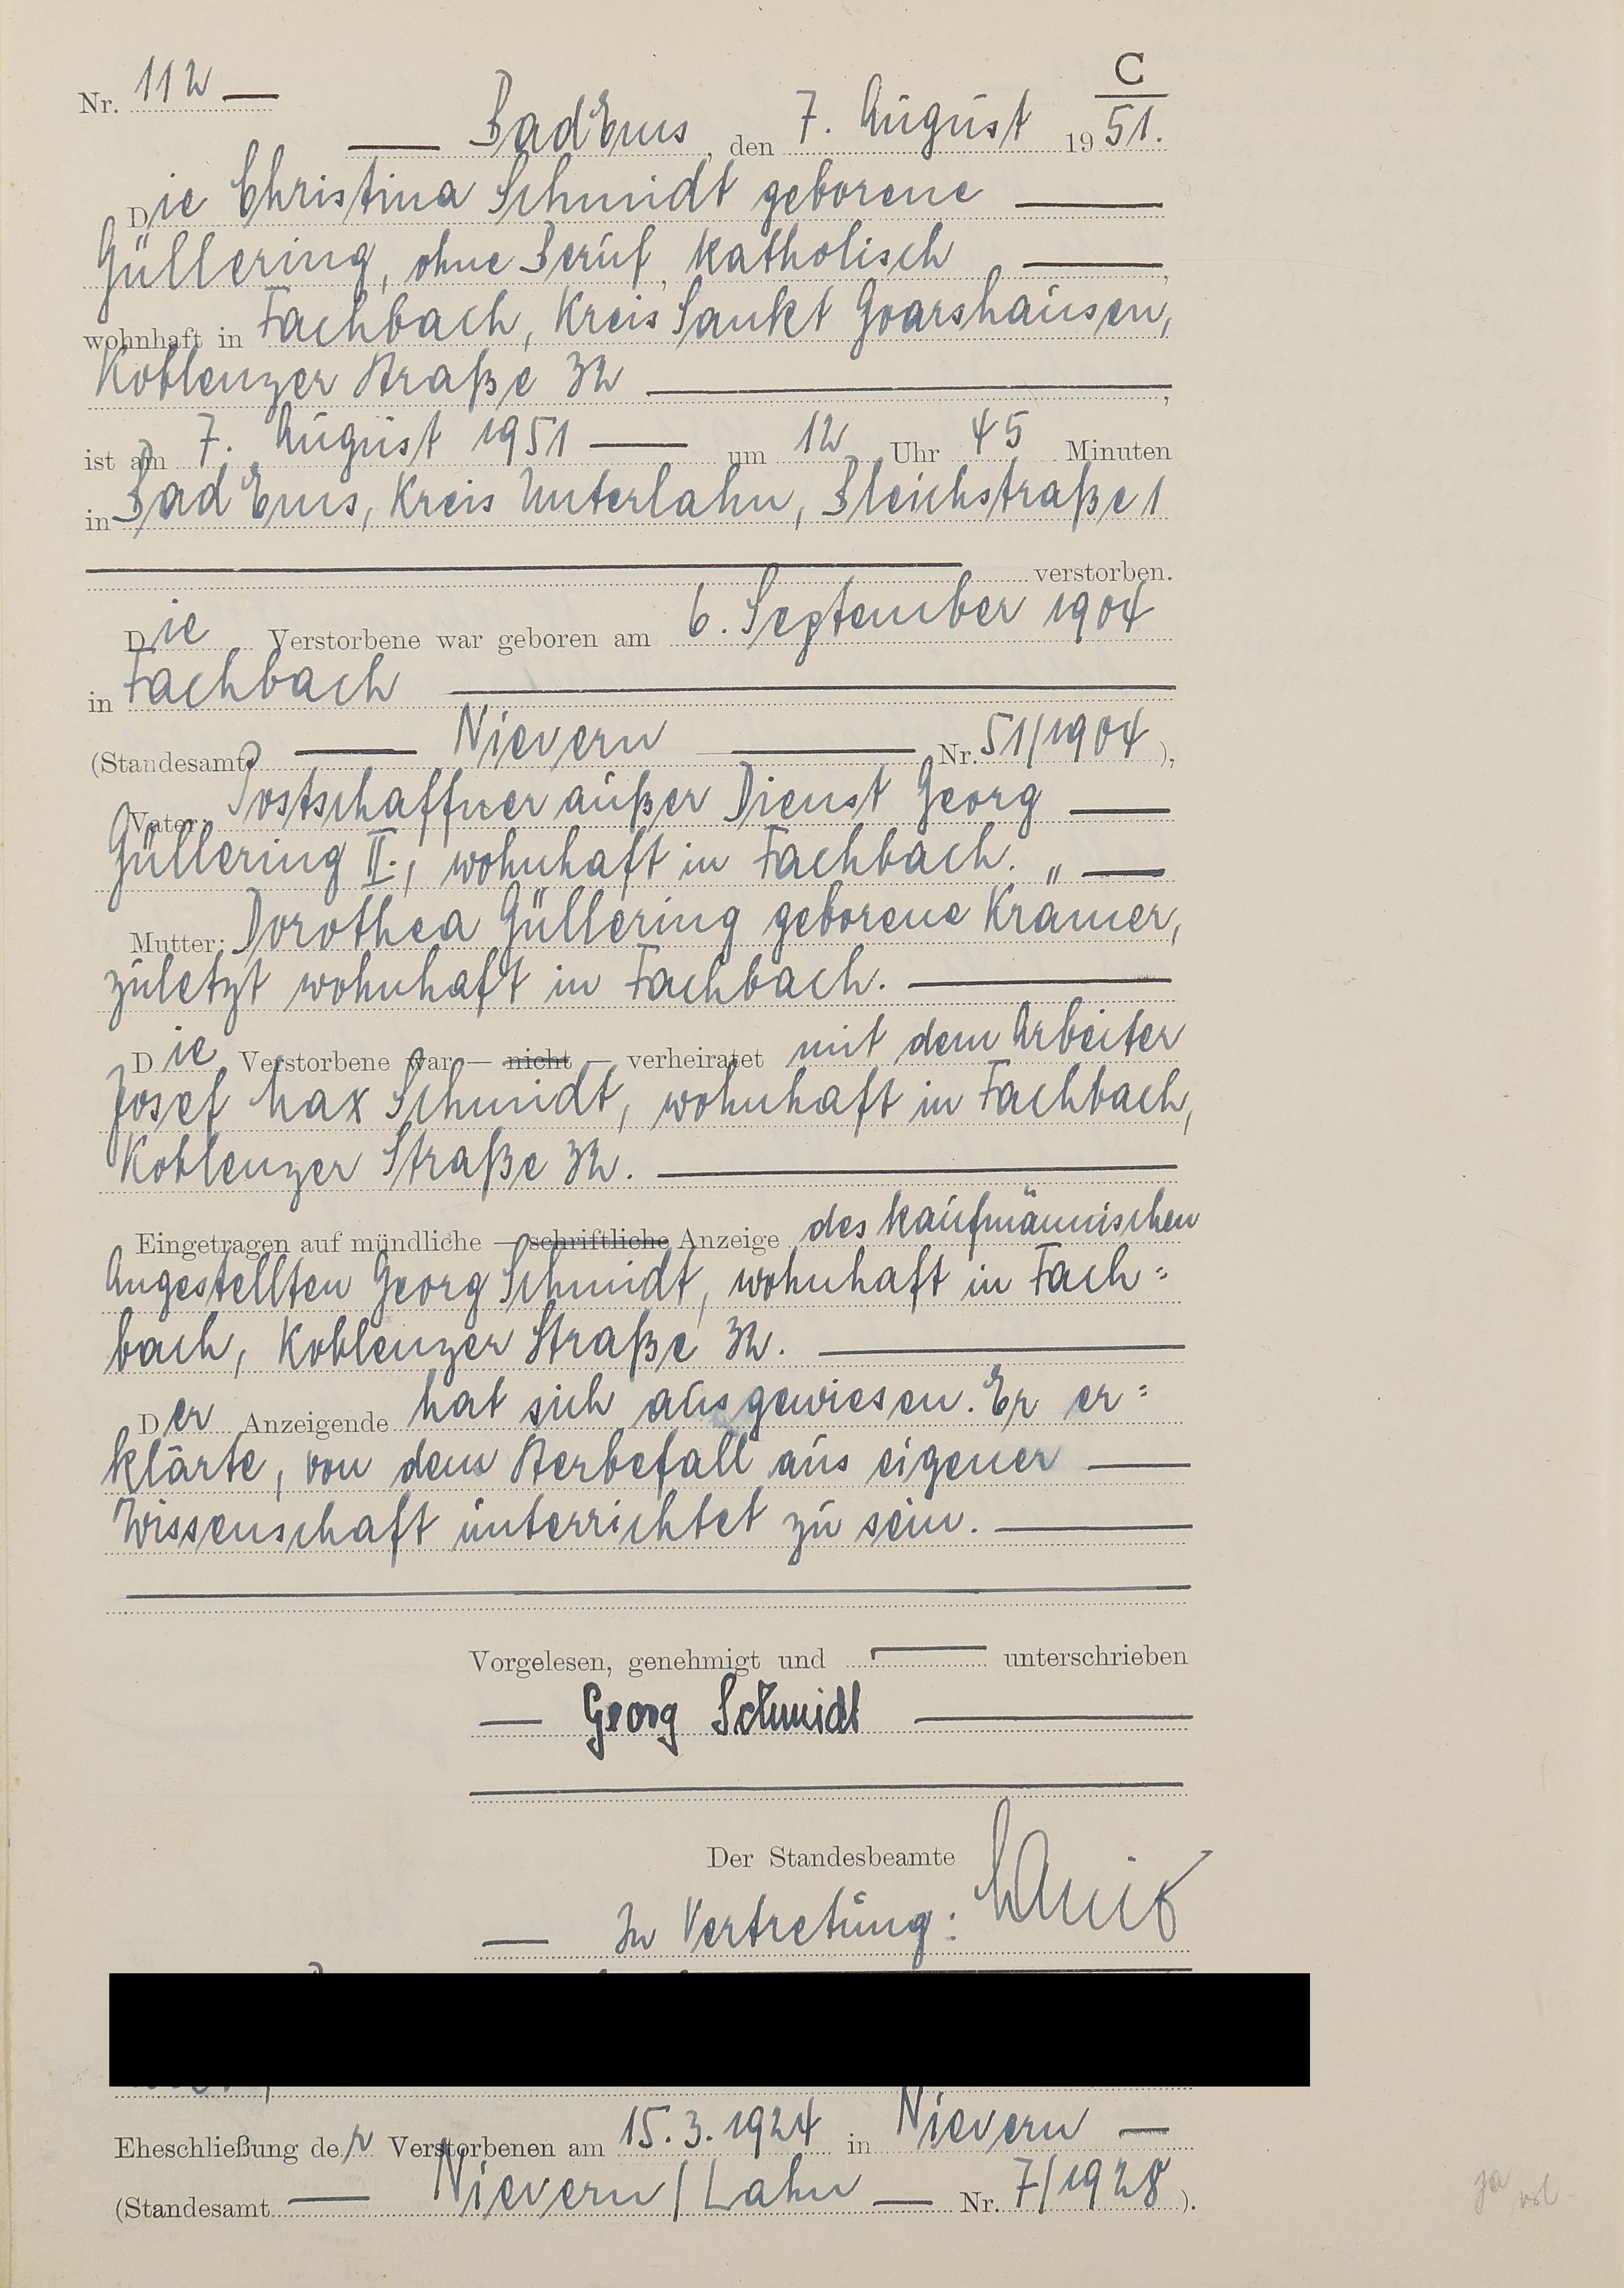 C
Nr. 112
Bad Ems, den 7. August 1951.
Die Christina Schmidt geborene
Güllering, ohne Beruf, katholisch,
wohnhaft in Fachbach, Kreis Sankt Goarshausen,
Koblenzer Straße 32,
ist am 7. August 1951 um 12 Uhr 45 Minuten
in Bad Ems, Kreis Unterlahn, Bleichstraße 1
verstorben.
Die Verstorbene war geboren am 6. September 1904
in Fachbach
(Standesamt Nievern Nr. 51/1904),
Vater: Postschaffner außer Dienst Georg
Güllering II., wohnhaft in Fachbach. „
Mutter: Dorothea Güllering geborene Kramer,
zuletzt wohnhaft in Fachbach.
Die Verstorbene war — nicht — verheiratet mit dem Arbeiter
Josef Max Schmidt, wohnhaft in Fachbach,
Koblenzer Straße 32.
Eingetragen auf mündliche — schriftliche Anzeige des kaufmännischen
Angestellten Georg Schmidt, wohnhaft in Fach=
bach, Koblenzer Straße 32.
Der Anzeigende hat sich ausgewiesen. Er er=
klärte, von dem Sterbefall aus eigener
Wissenschaft unterrichtet zu sein.
Vorgelesen, genehmigt und unterschrieben
Georg Schmidt
Der Standesbeamte
In Vertretung:
Eheschließung der Verstorbenen am 15.3.1924 in Nievern
(Standesamt Nievern/Lahn Nr. 7/1928).